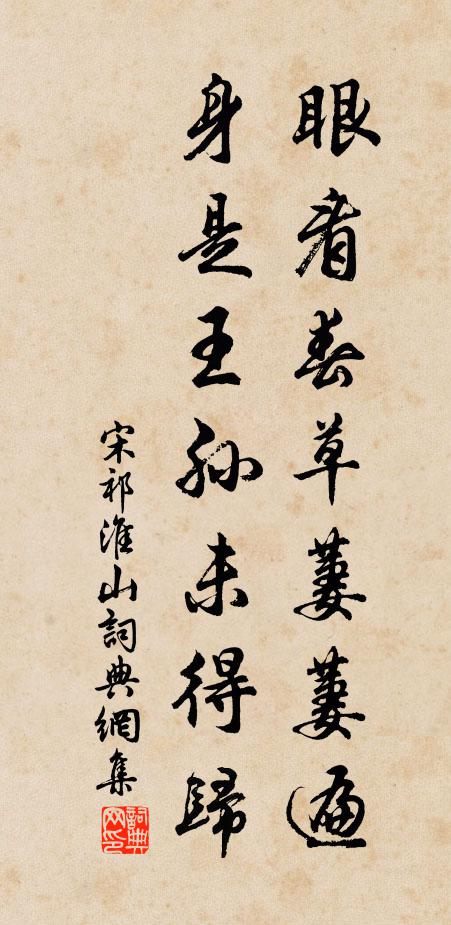 眼看春草萋萋遍
身是王孫未得歸
宋祁淮山詞典網集
詞典网印